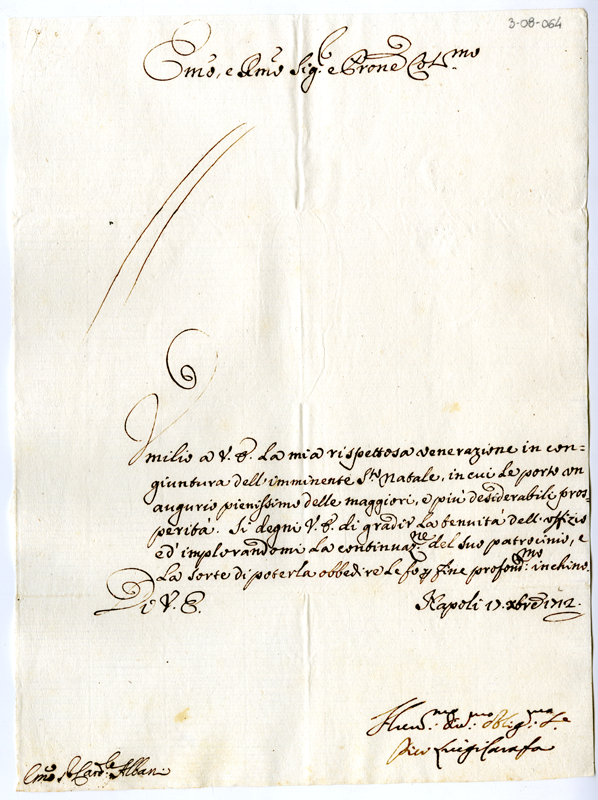 3-08-064
Emo, e Rmo Sig.r e Prone Col.mo
Vmilio a V. E. la mia rispettosa venerazione in con=
giuntura dell'imminente S.to Natale, in cui le porto un
augurio pienissimo delle maggiori, e più desiderabili pros=
perità. Si degni V. E. di gradir la tenuità dell'offizio
ed' implorandomi la continuaz.ne del suo patrocinio, e
la sorte di poterla obbedire le fo q fine profond.mo inchino.
Di V. E. Napoli 17. Xbre 1712.
Hum.mo div.mo oblig.mo Se
Pier Luigi Carafa
Emo S.r Card.le Albani